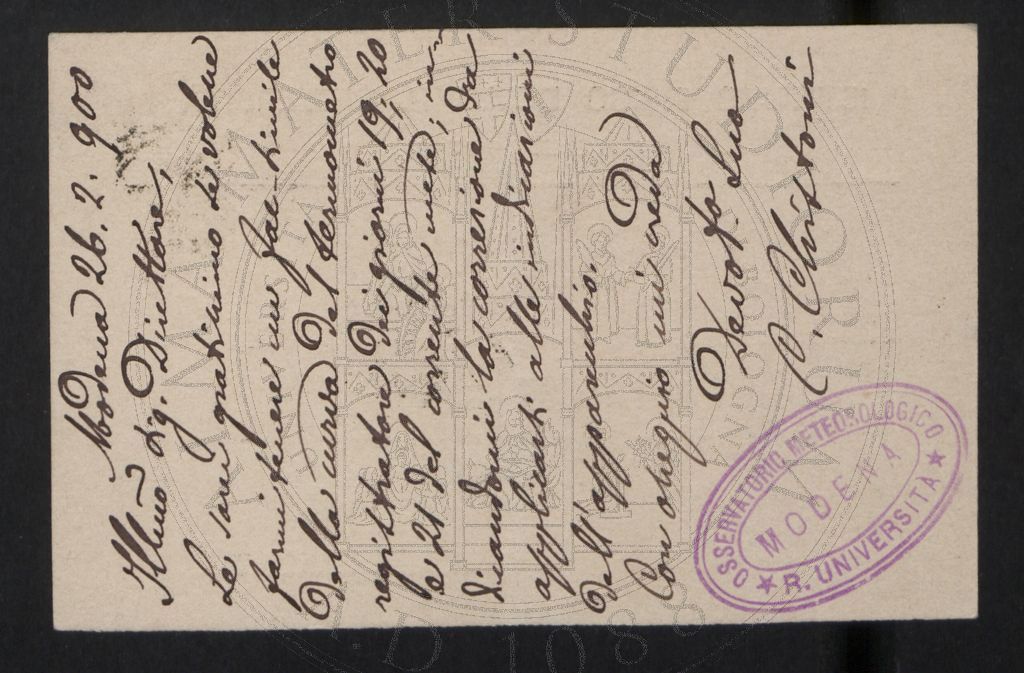 Modena 26. 2. 900
Illmo Sig. Direttore,
Le sarei gratissimo se volesse
farmi tenere un fac-simile
della curva del termometro
registratore dei giorni 19, 20
e 21 del corrente mese,
dicandomi la correzione da
applicarsi alle indicazioni
dell'apparecchio.
Con ossequio mi creda
Devoto Suo
C. Chistoni
OSSERVATORIO METEOROLOGICO
MODENA
★ R. UNIVERSITA ★
ALMA MATER STUDIORUM
A.D. 1088